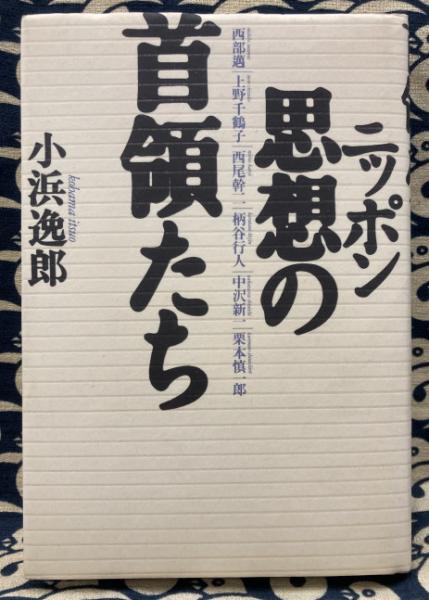 ニッポン
思想の
首領たち
西部邁│上野千鶴子│西尾幹二│柄谷行人│中沢新一│栗本慎一郎
小浜逸郎
kohama itsuo